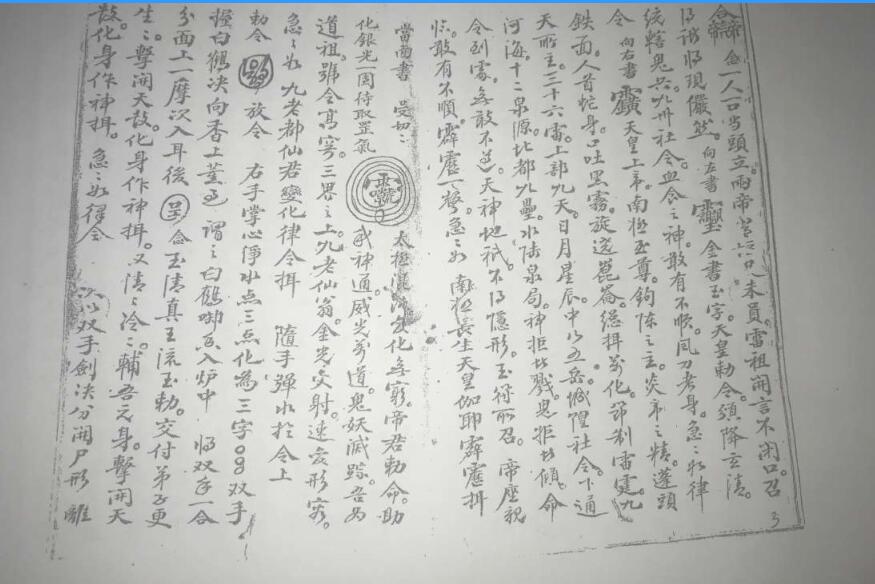 念一人口当頭立。兩帝未員。雷祖開言不閉口。召
将現儼然。向左書 金書玉字。天皇勅令。須降玄清。
統轄鬼兵。九州社令。血食之神。敢有不順。風刀考身。急急如律
令 向右書 天皇上帝。南極至尊。鈎陳之主。炎帝之精。蓬頭
鉄面。人首蛇身。口吐黑霧。旋遶崑崙。總摂萬化。節制雷霆。九
天所主。三十六雷。上部九天。日月星辰。中以五岳。城隍社令。下通
河海。十二泉源。北都九壘。水陸泉局。神拒者戮。鬼拒者傾。命
令到處。無敢不遵。天神地祇。不得隱形。玉符所召。帝座親
臨。敢有不順。霹靂一声。急急如 南極長生天皇伽耶霹靂摂
當面書 受切
太極混沌。玄化無窮。帝君勅命。助
化銀光一圈待取罡氣
我神通。威光萬道。鬼妖滅踪。吾如
道祖。號令高穹。三界之上。九老仙翁。金光交射。速變形容。
急急如 九老都仙君變化律令摂 隨手弹水於令上
勅令 放令 右手掌心浄水点三点化為三字 双手
握白鶴决向香上盖过 謂之白鶴啣 入炉中 将双手一合
分面上一摩次入耳後 念玉清真王流玉勅。交付弟子更
生。擊開天鼓。化身作神摂。又清清冷冷。輔吾之身。擊開天
鼓。化身作神摂。急急如律令 次以双手劍决分開尸形離
3